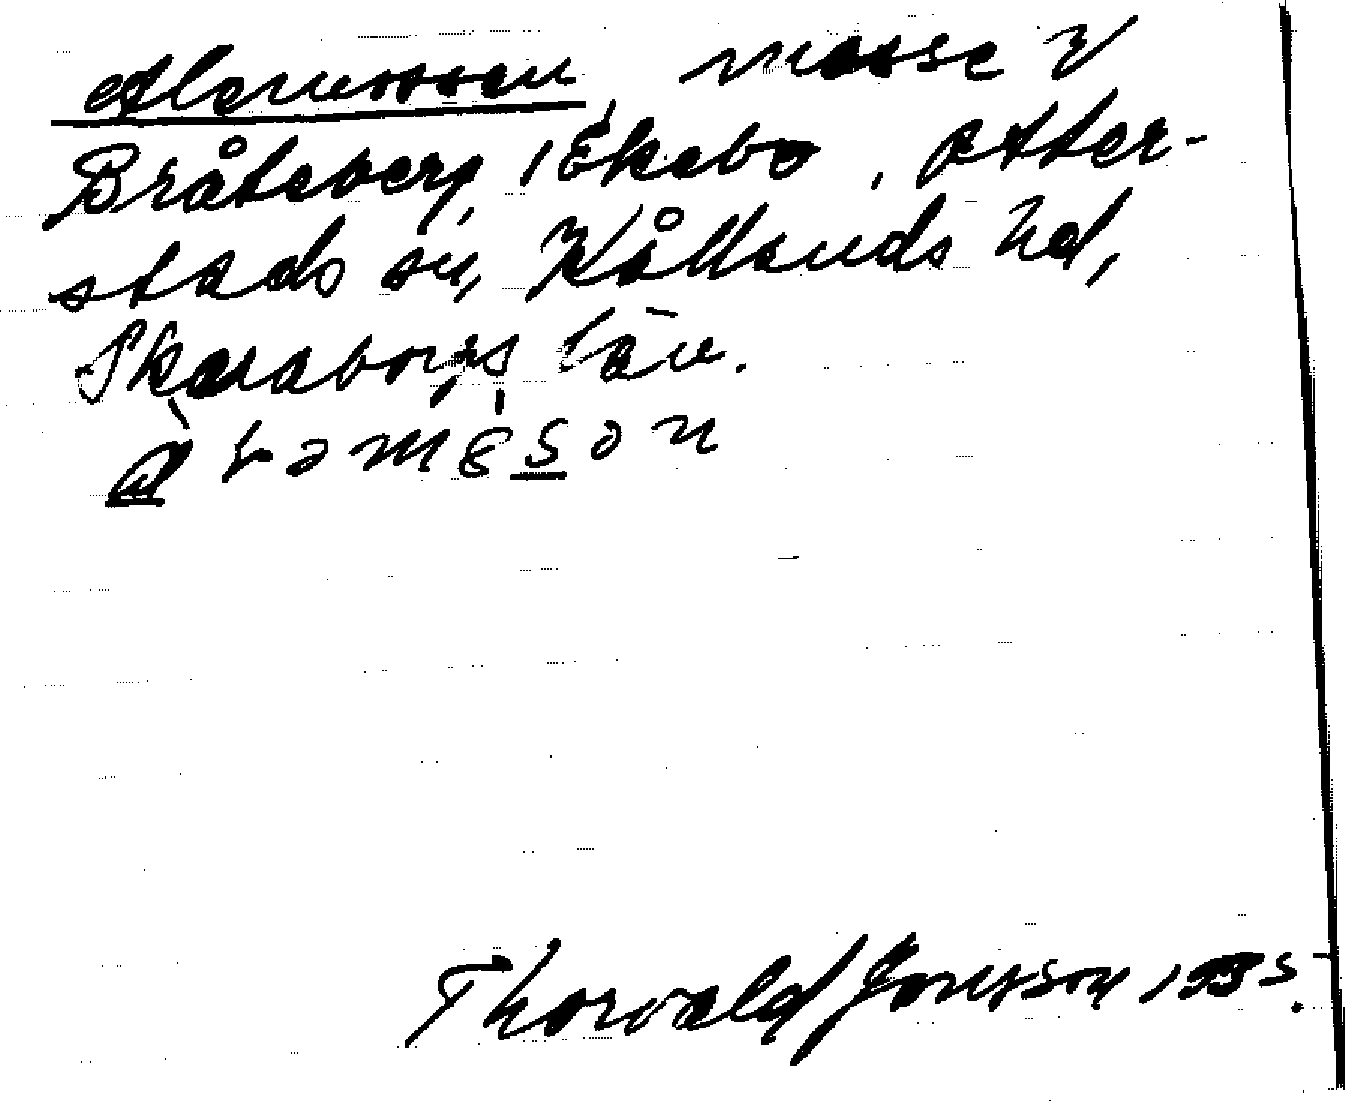 Alemossen, mosse V
Bråteberg, Ekebo, Otter-
stads sn, Kållands hd,
Skaraborgs län.
Thorvald Jonsson 1935.